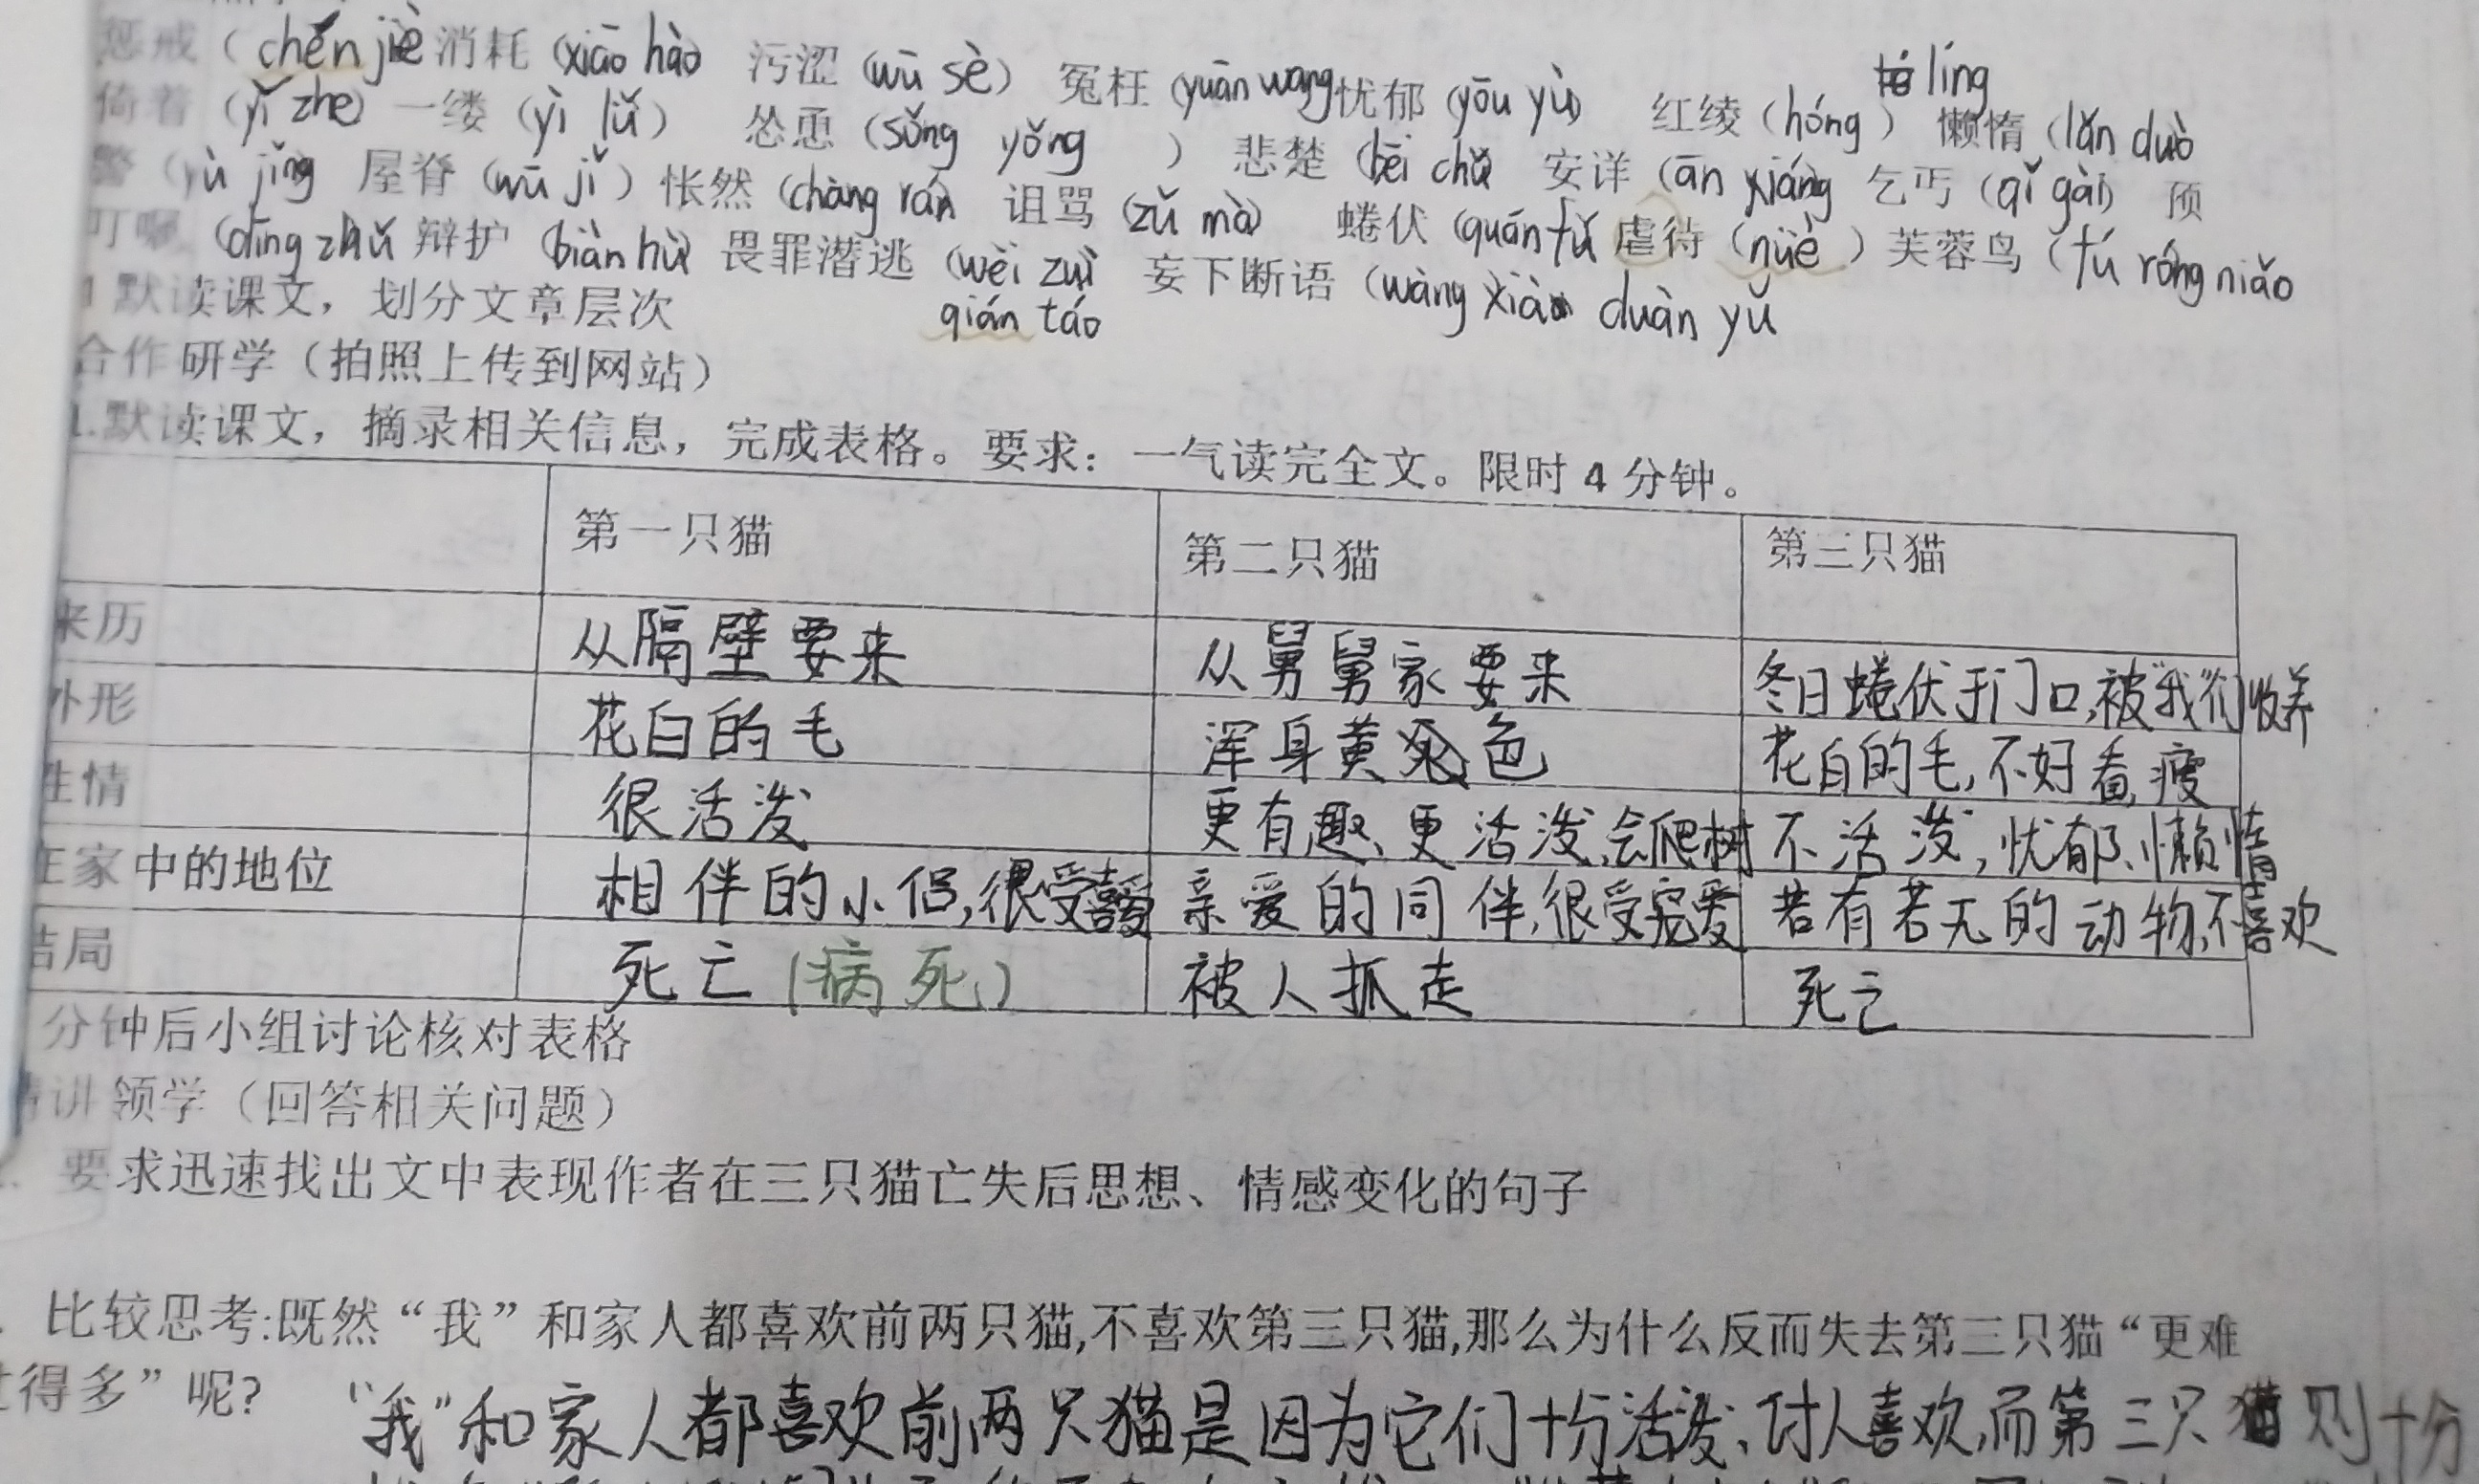 惩戒(chéng jiè 消耗(xiāo hào) 污涩(wū sè) 冤枉(yuān wang)忧郁(yōu yù) 红绫(hóng líng) 懒惰(lǎn duò
倚着(yǐ zhe) 一缕(yì lǚ) 怂恿(sǒng yǒng) 悲楚(bēi chǔ 安详(ān xiáng 乞丐(qǐ gài) 预
警(yù jǐng 屋脊(wū jǐ) 怅然(chàng rán 诅骂(zǔ mà) 蜷伏(quán fú 虐待(nüè) 芙蓉鸟(fú róng niǎo
叮嘱(dīng zhǔ 辩护(biàn hù) 畏罪潜逃(wèi zuì qián táo 妄下断语(wàng xià duàn yǔ
默读课文，划分文章层次
合作研学（拍照上传到网站）
1.默读课文，摘录相关信息，完成表格。要求：一气读完全文。限时 4 分钟。
第一只猫 第二只猫 第三只猫
来历 从隔壁要来 从舅舅家要来 冬日蜷伏于门口,被"我"们收养
外形 花白的毛 浑身黄色 花白的毛,不好看,瘦
性情 很活泼 更有趣、更活泼,会爬树 不活泼,忧郁、懒惰
在家中的地位 相伴的小侣,很受喜爱 亲爱的同伴,很受宠爱 若有若无的动物,不喜欢
结局 死亡(病死) 被人抓走 死亡
分钟后小组讨论核对表格
精讲领学（回答相关问题）
要求迅速找出文中表现作者在三只猫亡失后思想、情感变化的句子
比较思考:既然“我”和家人都喜欢前两只猫,不喜欢第三只猫,那么为什么反而失去第三只猫“更难
过得多”呢?
"我"和家人都喜欢前两只猫是因为它们十分活泼、讨人喜欢,而第三只猫则十分